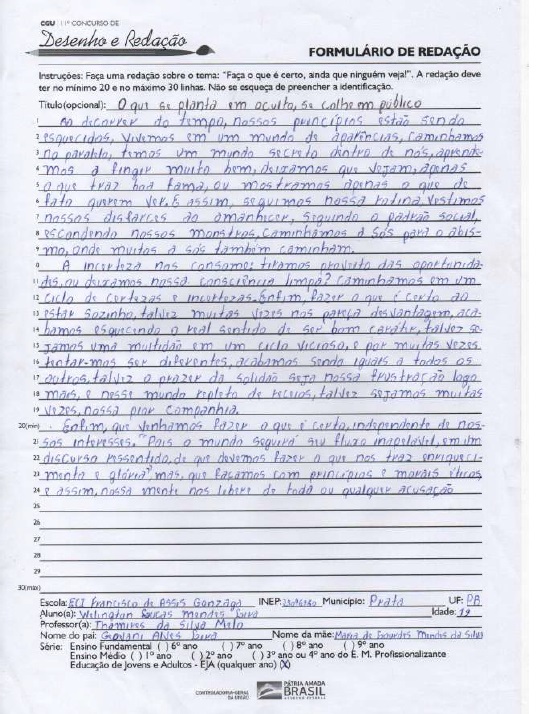 CGU | 11º CONCURSO DE
Desenho e Redação
FORMULÁRIO DE REDAÇÃO
Instruções: Faça uma redação sobre o tema: "Faça o que é certo, ainda que ninguém veja!". A redação deve
ter no mínimo 20 e no máximo 30 linhas. Não se esqueça de preencher a identificação.
Título(opcional): O que se planta em oculto, se colhe em público
1 Ao decorrer do tempo, nossos princípios estão sendo
2 esquecidos, vivemos em um mundo de aparências, caminhamos
3 no paralelo, temos um mundo secreto dentro de nós, aprende-
4 mos a fingir muito bem, deixamos que vejam, apenas
5 o que traz boa fama, ou mostramos apenas o que de
6 fato querem ver. E assim, seguimos nossa rotina. Vestimos
7 nossos disfarces ao amanhecer, seguindo o padrão social,
8 escondendo nossos monstros, caminhamos a sós para o abis-
9 mo, onde muitos a sós também caminham.
10 A incerteza nos consome: tiramos proveito das oportunida-
11 des, ou deixamos nossa consciência limpa? Caminhamos em um
12 ciclo de certezas e incertezas. Enfim, fazer o que é certo ao
13 estar sozinho, talvez muitas vezes nos pareça desvantagem, aca-
14 bamos esquecendo o real sentido de ser bom caráter, talvez se-
15 jamos uma multidão em um ciclo vicioso, e por muitas vezes
16 tentar-mos ser diferentes, acabamos sendo iguais a todos os
17 outros, talvez o prazer da solidão seja nossa frustração logo
18 mais, e nesse mundo repleto de receios, talvez sejamos muitas
19 vezes, nossa pior companhia.
20(min) Enfim, que venhamos fazer o que é certo, independente de nos-
21 sos interesses. "Pois o mundo seguirá seu fluxo inapelável, em um
22 discurso ressentido, de que devemos fazer o que nos traz enriqueci-
23 mento e glória", mas, que façamos com princípios e morais éticos
24 e assim, nossa mente nos libere de toda ou qualquer acusação
25
26
27
28
29
30(max)
Escola: ECI Francisco de Assis Gonzaga INEP: Município: Prata UF: PB
Aluno(a): Welington Mendes Idade: 19
Professor(a): Thamires da Silva Melo
Nome do pai: Geovani Alves Nome da mãe: Maria de Lourdes Mendes da Silva
Série: Ensino Fundamental ( ) 6º ano ( ) 7º ano ( ) 8º ano ( ) 9º ano
Ensino Médio ( ) 1º ano ( ) 2º ano ( ) 3º ano ou 4º ano do E. M. Profissionalizante
Educação de Jovens e Adultos - EJA (qualquer ano) (X)
CONTROLADORIA-GERAL
DA UNIÃO
PÁTRIA AMADA
BRASIL
GOVERNO FEDERAL